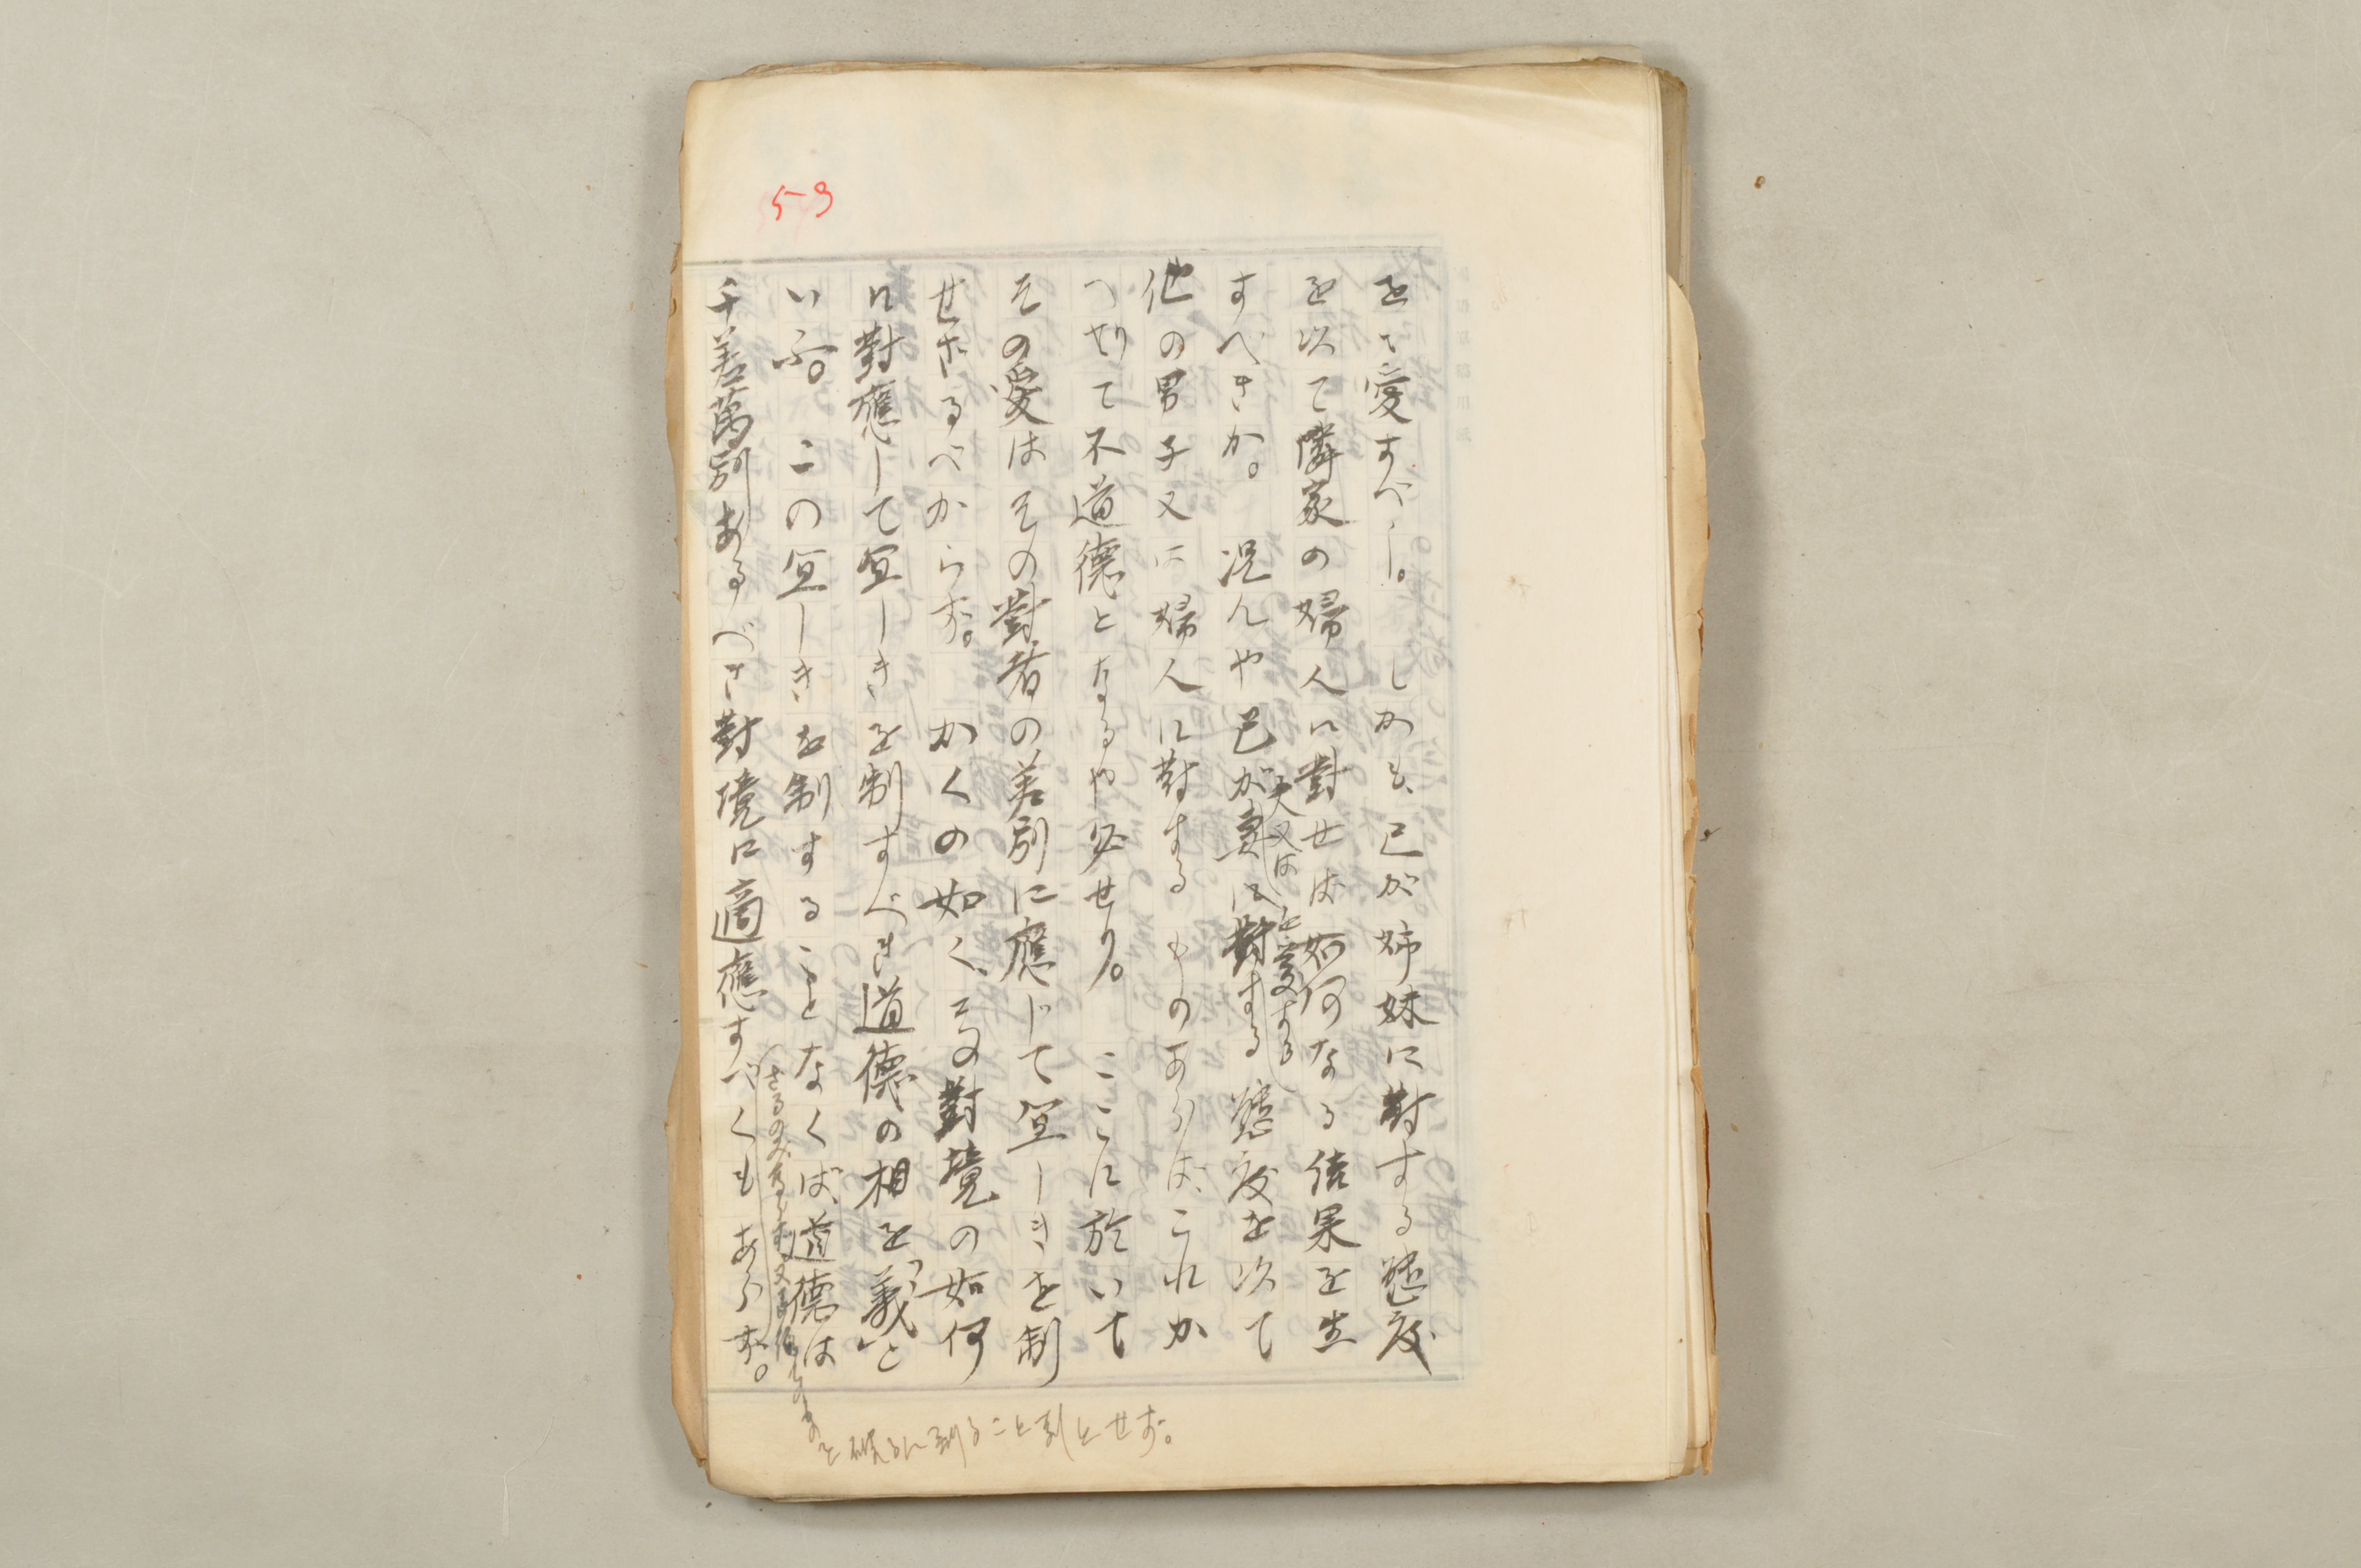 59
をも愛すべし。しかも、己が姉妹に對する態度
を以て隣家の婦人に對せば如何なる結果を生
すべきか。況んや己が妻に對する態度を以て
夫又は
を愛する
他の男子又に婦人に對するものあらば、これか
へりて不道德となるや必せり。ここに於いて
その愛はその對者の差別に應じて宜しきを制
せざるべからず。かくの如く、その對境の如何
に對應して宜しきを制すべき道德の相を「義」と
いふ。この宜しきを制することなくば、道德は
千差萬別あるべき對境に適應すべくもあらず。
さるのみならず又
を破るに到ること尠しとせず。